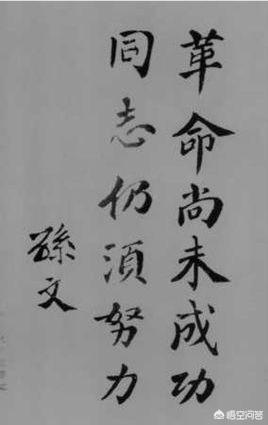 革命尚未成功
同志仍須努力
孫文
悟空问答